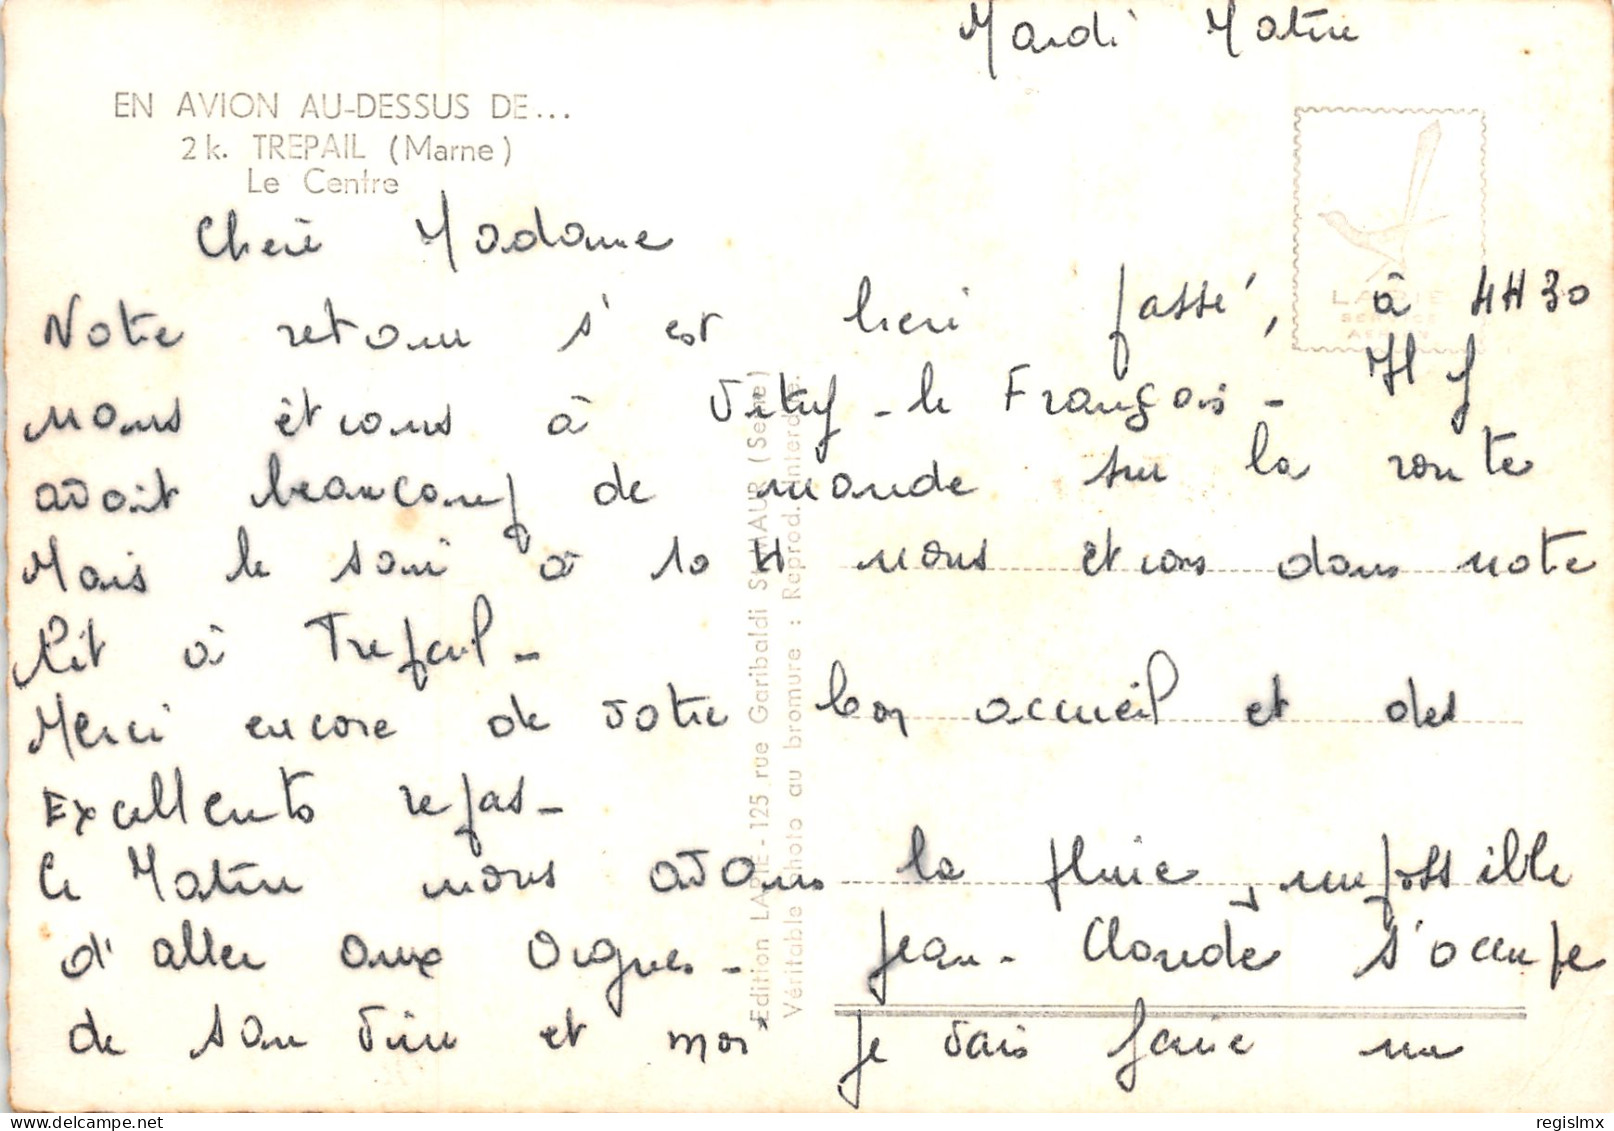 Mardi Matin
EN AVION AU-DESSUS DE...
2 k. TREPAIL (Marne)
Le Centre
LAPIE
SERVICE
AERIEN
Cherè Madame
Notre retour s'est bien passé, à 4H30
nous ètions à Vitry-le François - Il y
avait beaucoup de monde sur la route
Mais le soir à 10 H nous étions dans notre
lit à Trepail -
Merci encore de votre bon accueil et des
Excellents repas -
Ce Matin nous avons la pluie, impossible
d'aller aux vignes - Jean-Claude s'occupe
de son vin et moi je vais faire un
Edition LAPIE - 125, rue Garibaldi ST-MAUR (Seine)
Véritable photo au bromure : Reprod. interdite.
regislmx